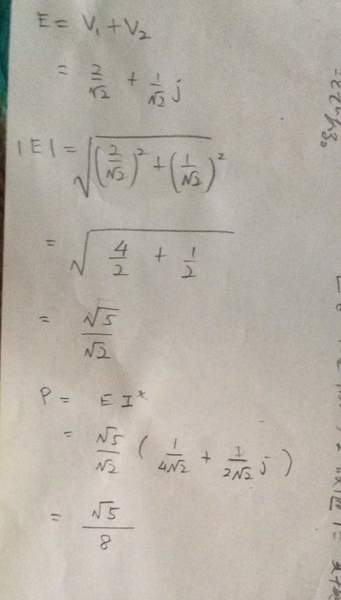 E = V₁ + V₂
= 2/√2 + 1/√2 j
|E| = √((2/√2)² + (1/√2)²)
= √(4/2 + 1/2)
= √5/√2
P = E I*
= √5/√2 (1/4√2 + 1/2√2 j)
= √5/8